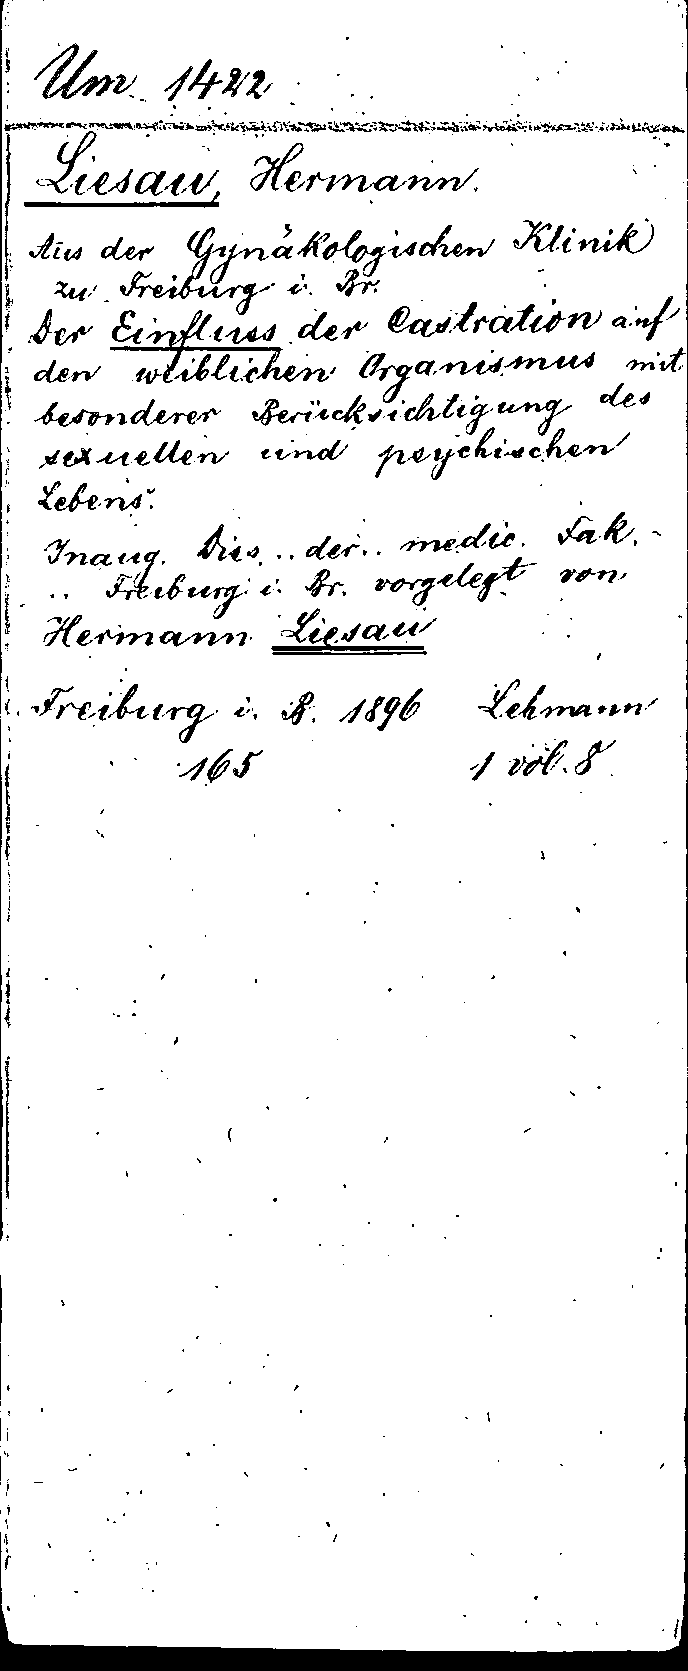 Um 1422
Liesau, Hermann.
Aus der Gynäkologischen Klinik
zu Freiburg i. Br.
Der Einfluss der Castration auf
den weiblichen Organismus mit
besonderer Berücksichtigung des
sexuellen und psychischen
Lebens.
Inaug. Diss. .. der .. medic. Fak. -
.. Freiburg i. Br. vorgelegt von
Hermann Liesau
Freiburg i. B. 1896 Lehmann
165 1 vol. 8